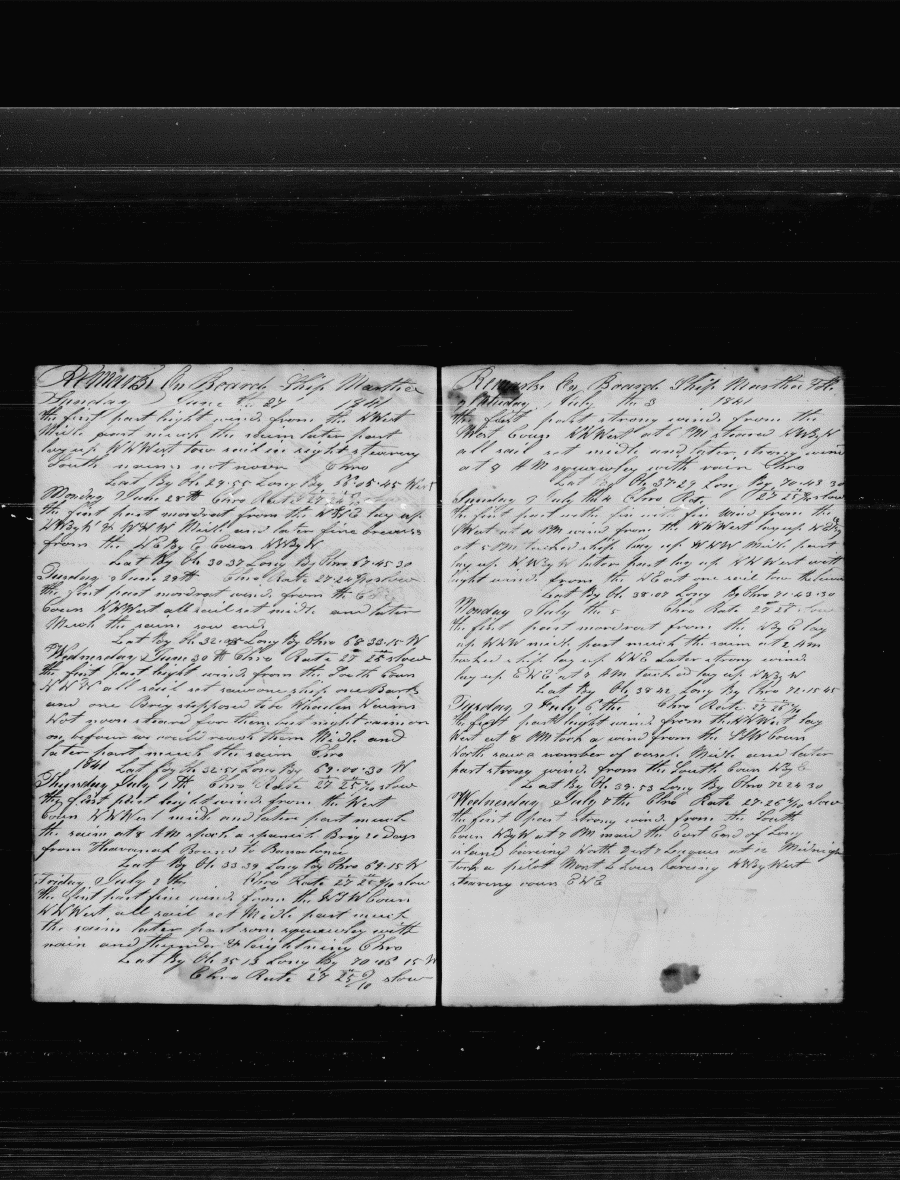 Remarks On Board Ship Martha
Sunday June th 27 1841
the first part light wind from the NWest
Midle part much the saim later part
lay up NNWest tow sail in sight stearing
South nairns not noon Chro
Lat By Ob 29-55 Long By 45 West
Monday June 28th Chro Rate 27
the first part mordrat from the lay up
NWByN & NNW Midle and later fine breaiss
from the NEBy E Cours NWByN
Lat By Ob 30 37 Long By Chro 67-45 30
Tuesday June 29th Chro Rate 27 24 slow
the first part mordrat wind from th E
Cours NNWest all sail set midle and later
Much the saim so ends
Lat By Ob 32-08 Long By Chro 68-33-15 W
Wednesday June 30th Chro Rate 27 25 slow
the first part light wind from the South Cours
NNW all sail set saw one ship one Bark
and one Brig
Not noon steard for them but night caim on
on before we could reach them Midle and
later part much the saim Chro
1841 Lat By Ob 32-51 Long By 69-00-30 W
Thursday July 1 th Chro Rate 27 25 slow
the first part light wind from the West
Cours NNWest midle and later part much
the saim at 8 AM spok a spanish Brig 20 days
from Heavanah Bound to Barselonea
Lat By Ob 33 39 Long By Chro 69-15 W
Friday July 2 th Chro Rate 27 25 slow
the first part fine wind from the WSW Cours
NNWest all sail set Midle part much
the saim later part som squawley with
rain and thunder & leightning Chro
Lat By Ob 35 13 Long By 70-06 15 W
Chro Rate 27 25 9/10 slow
Remarks On Board Ship Martha
Saturday July th 3 1841
the first part strong wind from the
West Cours NNWest at 6 PM steared NWByN
all sail set midle and later strong wind
at 8 AM squawley with rain Chro
Lat By Ob 37-29 Long By 70-43 30
Sunday July th 4 Chro Rat 27 25 slow
the first part wind from the
West at 4 PM wind from the NNWest lay up
at 5 PM tacked ship lay up NNW Midle part
lay up NWByW later part lay up NNWest with
light wind from the NEast one sail tow the
Lat By Ob 38-07 Long By Chro 71-43-30
Monday July th 5 Chro Rate 27 25 slow
the first part mordrat from the NByE lay
up WNW midle part much the saim at 2 AM
tacked ship lay up NNE Later strong wind
lay up ENE at 8 AM tacked lay up NWByW
Lat By Ob 38 42 Long By Chro 72-15 45
Tuesday July 6 th Chro Rate 27 26
the first part light wind from the NNWest lay
West at 8 PM took a wind from the SSW Cours
North saw a number of vessels Midle and later
part strong wind from the South Cours NByE
Lat By Ob 39-53 Long By Chro 72 24 30
Wednesday July 7 th Chro Rate 27-26 slow
the first part strong wind from the South
Cours NByW at 7 PM maid the East End of Long
island bearing North Dist 7 Leagues at 12 Midnight
took a pilot bearing NWByWest
stearing cours ENE